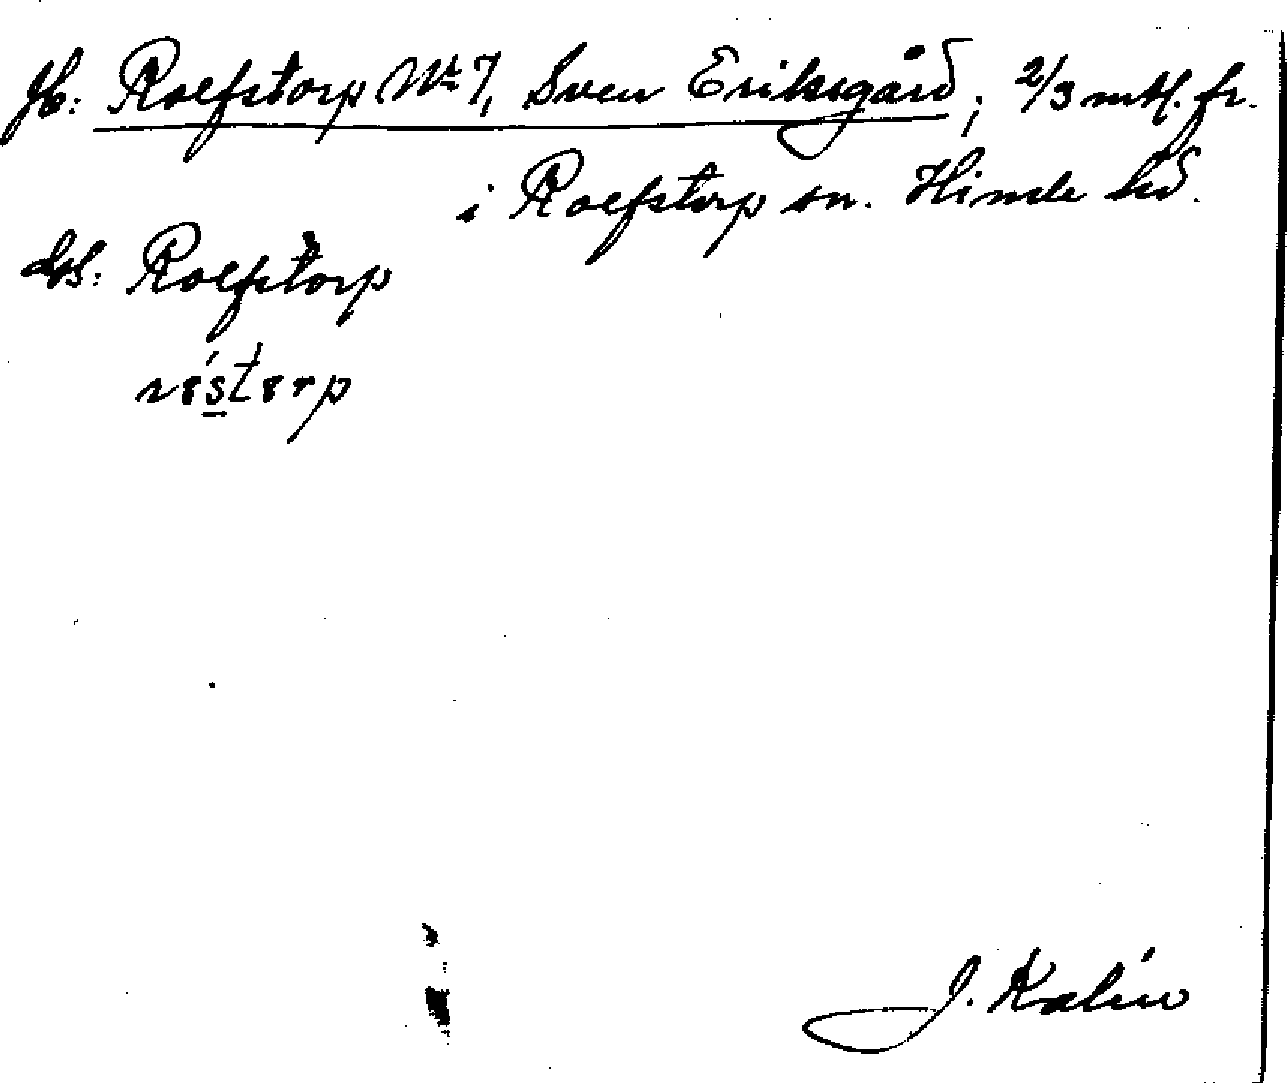 Jb: Rolfstorp Nr 7, Sven Eriksgård; 2/3 mtl. fr.
i Rolfstorp sn. Himle hd.
Ls: Rolfstorp
J. Kalén